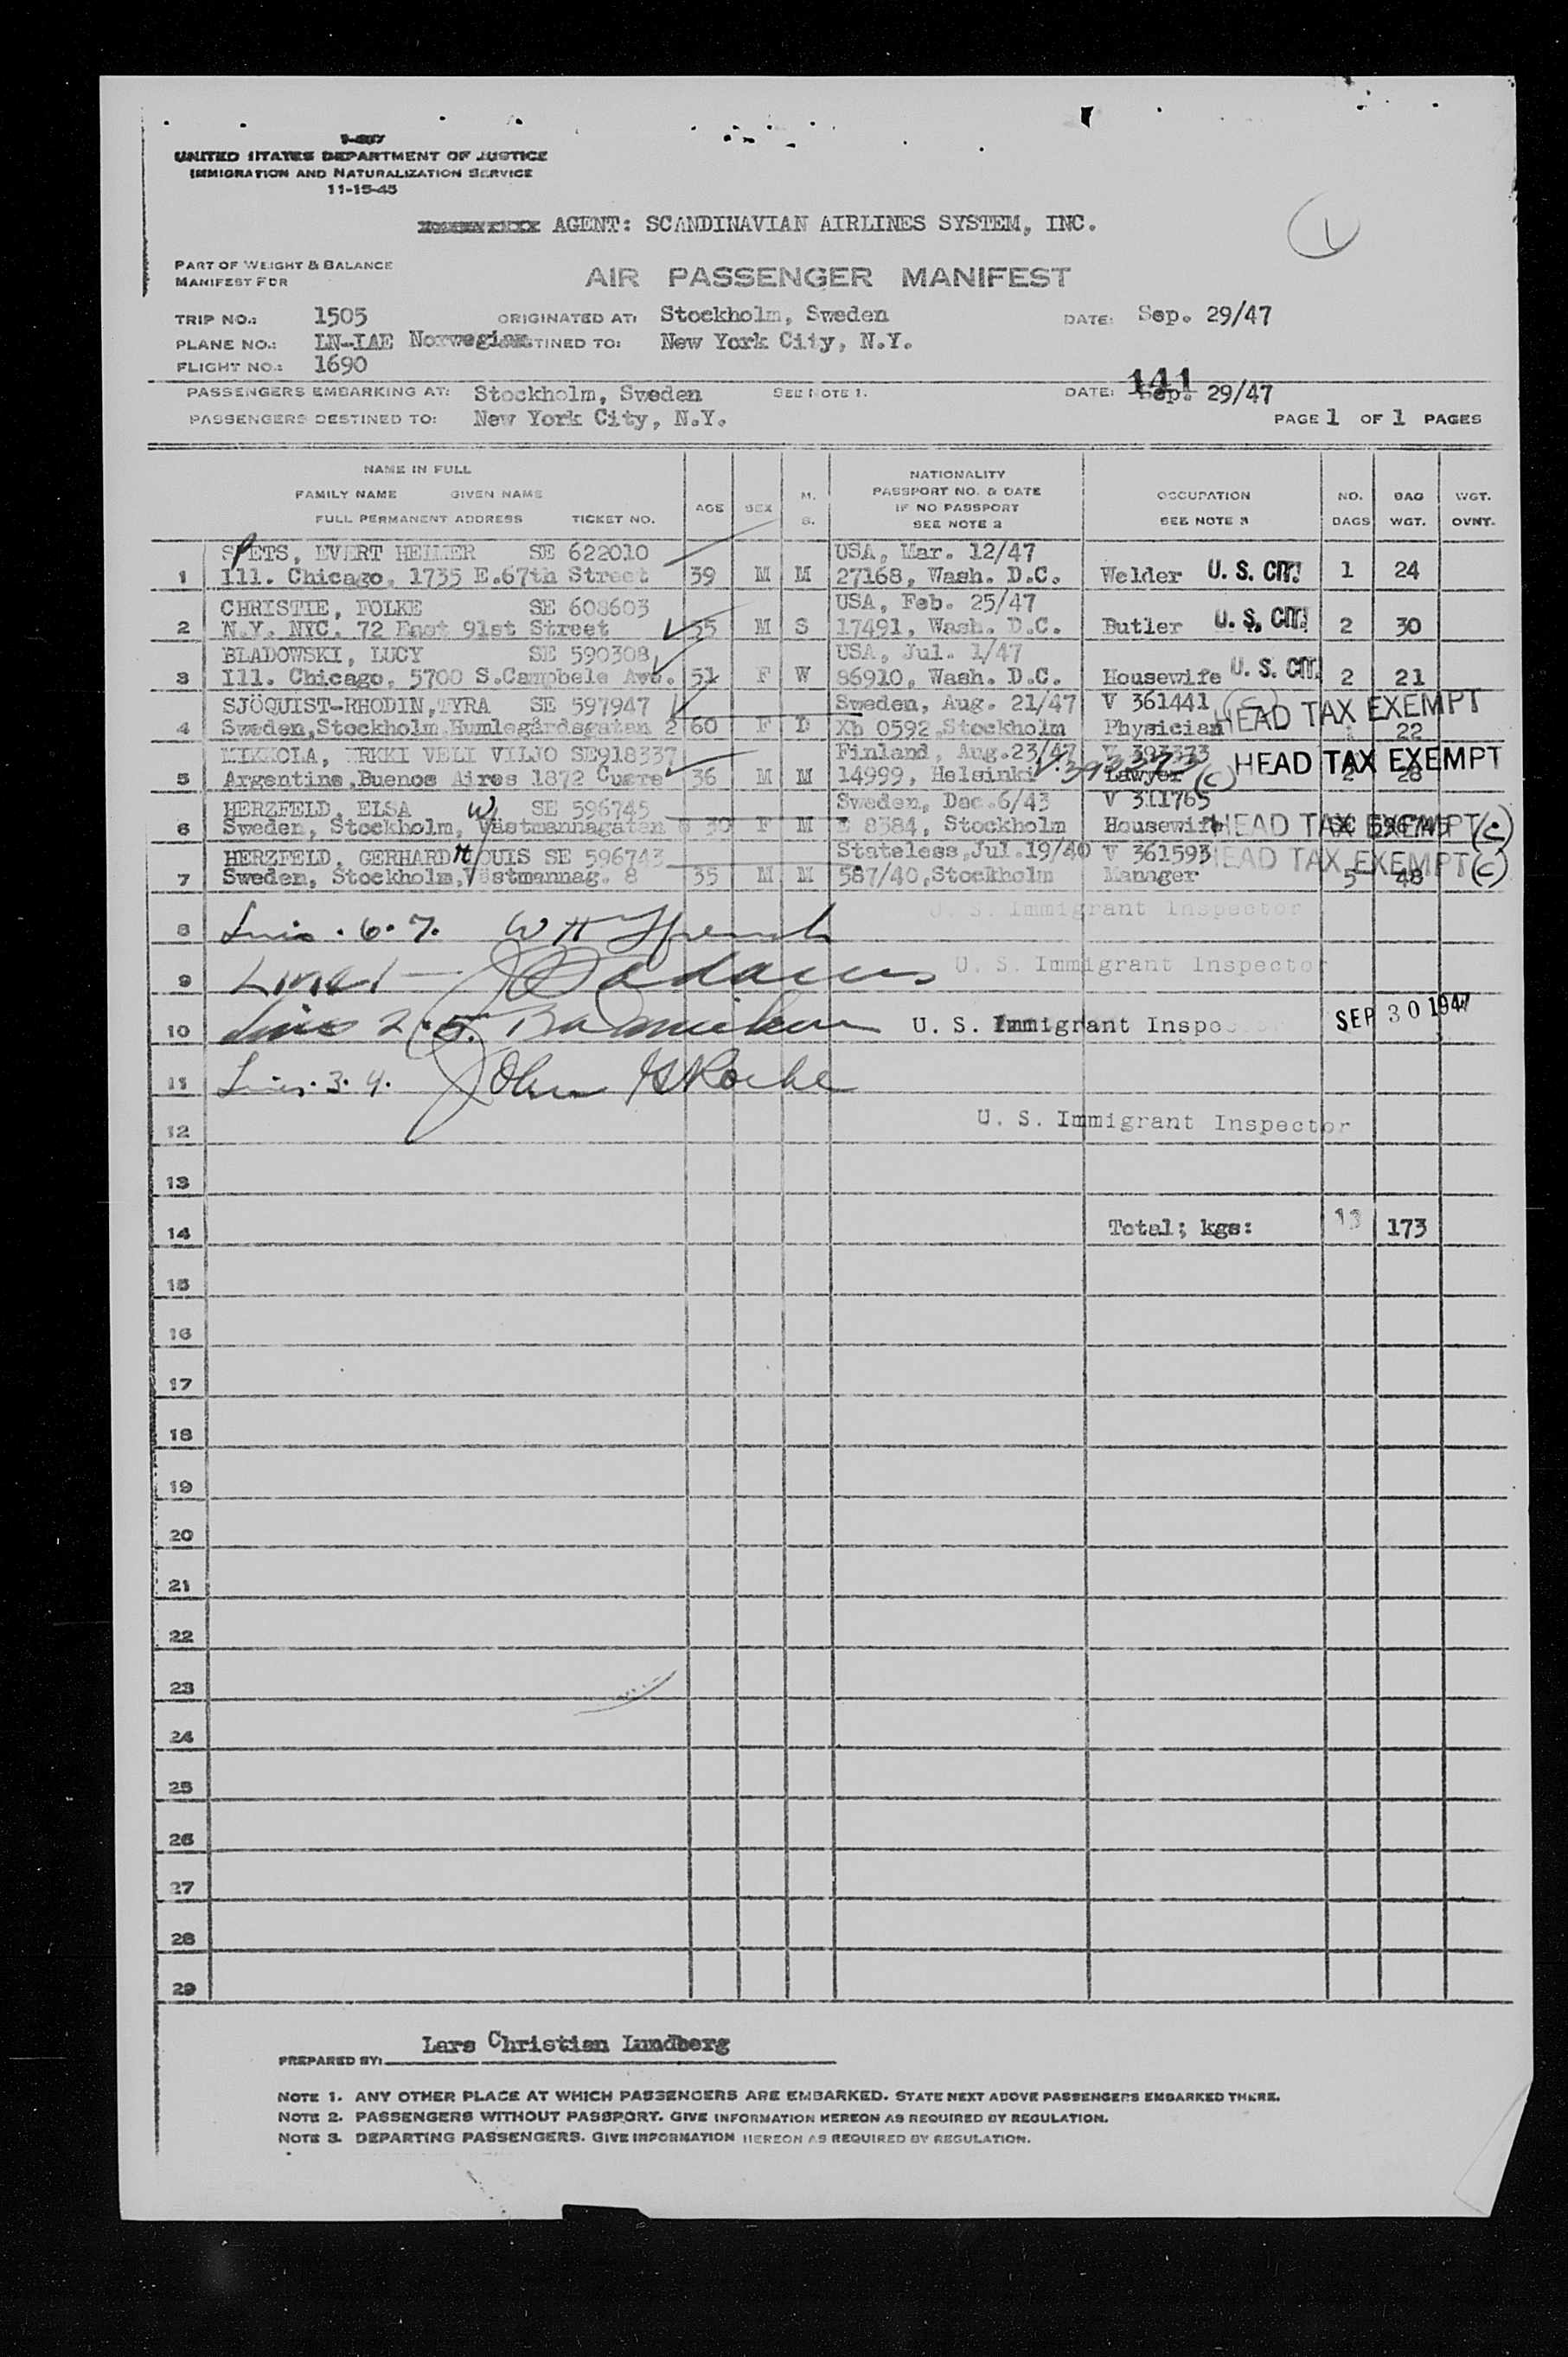 I-467
UNITED STATES DEPARTMENT OF JUSTICE
IMMIGRATION AND NATURALIZATION SERVICE
11-15-45
AGENT: SCANDINAVIAN AIRLINES SYSTEM, INC.
1
PART OF WEIGHT & BALANCE
MANIFEST FOR
AIR PASSENGER MANIFEST
TRIP NO.: 1505 ORIGINATED AT: Stockholm, Sweden DATE: Sep. 29/47
PLANE NO.: LN-IAE Norwegian DESTINED TO: New York City, N.Y.
FLIGHT NO.: 1690
141
PASSENGERS EMBARKING AT: Stockholm, Sweden SEE NOTE 1. DATE: Sep. 29/47
PASSENGERS DESTINED TO: New York City, N.Y. PAGE 1 OF 1 PAGES
NAME IN FULL
FAMILY NAME GIVEN NAME
FULL PERMANENT ADDRESS TICKET NO. AGE SEX M. S. NATIONALITY PASSPORT NO. & DATE IF NO PASSPORT SEE NOTE 2 OCCUPATION SEE NOTE 3 NO. BAGS BAG WGT. WGT. OVNT.
SPETS, EVERT HEIMER SE 622010 USA, Mar. 12/47
1 Ill. Chicago, 1735 E.67th Street 39 M M 27168, Wash. D.C. Welder U. S. CIT. 1 24
CHRISTIE, FOLKE SE 608603 USA, Feb. 25/47
2 N.Y. NYC. 72 East 91st Street 35 M S 17491, Wash. D.C. Butler U. S. CIT. 2 30
BLADOWSKI, LUCY SE 590308 USA, Jul. 1/47
3 Ill. Chicago, 5700 S.Campbele Ave. 51 F W 86910, Wash. D.C. Housewife U. S. CIT. 2 21
SJÖQUIST-RHODIN, TYRA SE 597947 Sweden, Aug. 21/47 V 361441 (C) HEAD TAX EXEMPT
4 Sweden, Stockholm Humlegårdsgatan 2 60 F D Xb 0592 Stockholm Physician 1 22
MIKKOLA, ERKKI VELI VILJO SE918337 Finland, Aug.23/47 V 393373 HEAD TAX EXEMPT
5 Argentine, Buenos Aires 1872 Cuare 36 M M 14999, Helsinki V. 393373 Lawyer (C) 2 28
HERZFELD, ELSA W SE 596745 Sweden, Dec.6/43 V 311765
6 Sweden, Stockholm, Västmannagatan 8 30 F M E 8384, Stockholm Housewife HEAD TAX EXEMPT (C) SE 596745
HERZFELD, GERHARD H LOUIS SE 596743 Stateless, Jul.19/40 V 361593 HEAD TAX EXEMPT (C)
7 Sweden, Stockholm, Västmannag. 8 35 M M 587/40, Stockholm Manager 5 48
U. S. Immigrant Inspector
8 Lines . 6. 7. W H
9 Line 1 — Adams U. S. Immigrant Inspector
10 Lines 2. 5. U. S. Immigrant Inspector SEP 30 1947
11 Lines. 3. 4. John Roche
12 U. S. Immigrant Inspector
13
14 Total; kgs: 13 173
15
16
17
18
19
20
21
22
23
24
25
26
27
28
29
PREPARED BY: Lars Christian Lundberg
NOTE 1. ANY OTHER PLACE AT WHICH PASSENGERS ARE EMBARKED. STATE NEXT ABOVE PASSENGERS EMBARKED THERE.
NOTE 2. PASSENGERS WITHOUT PASSPORT. GIVE INFORMATION HEREON AS REQUIRED BY REGULATION.
NOTE 3. DEPARTING PASSENGERS. GIVE INFORMATION HEREON AS REQUIRED BY REGULATION.